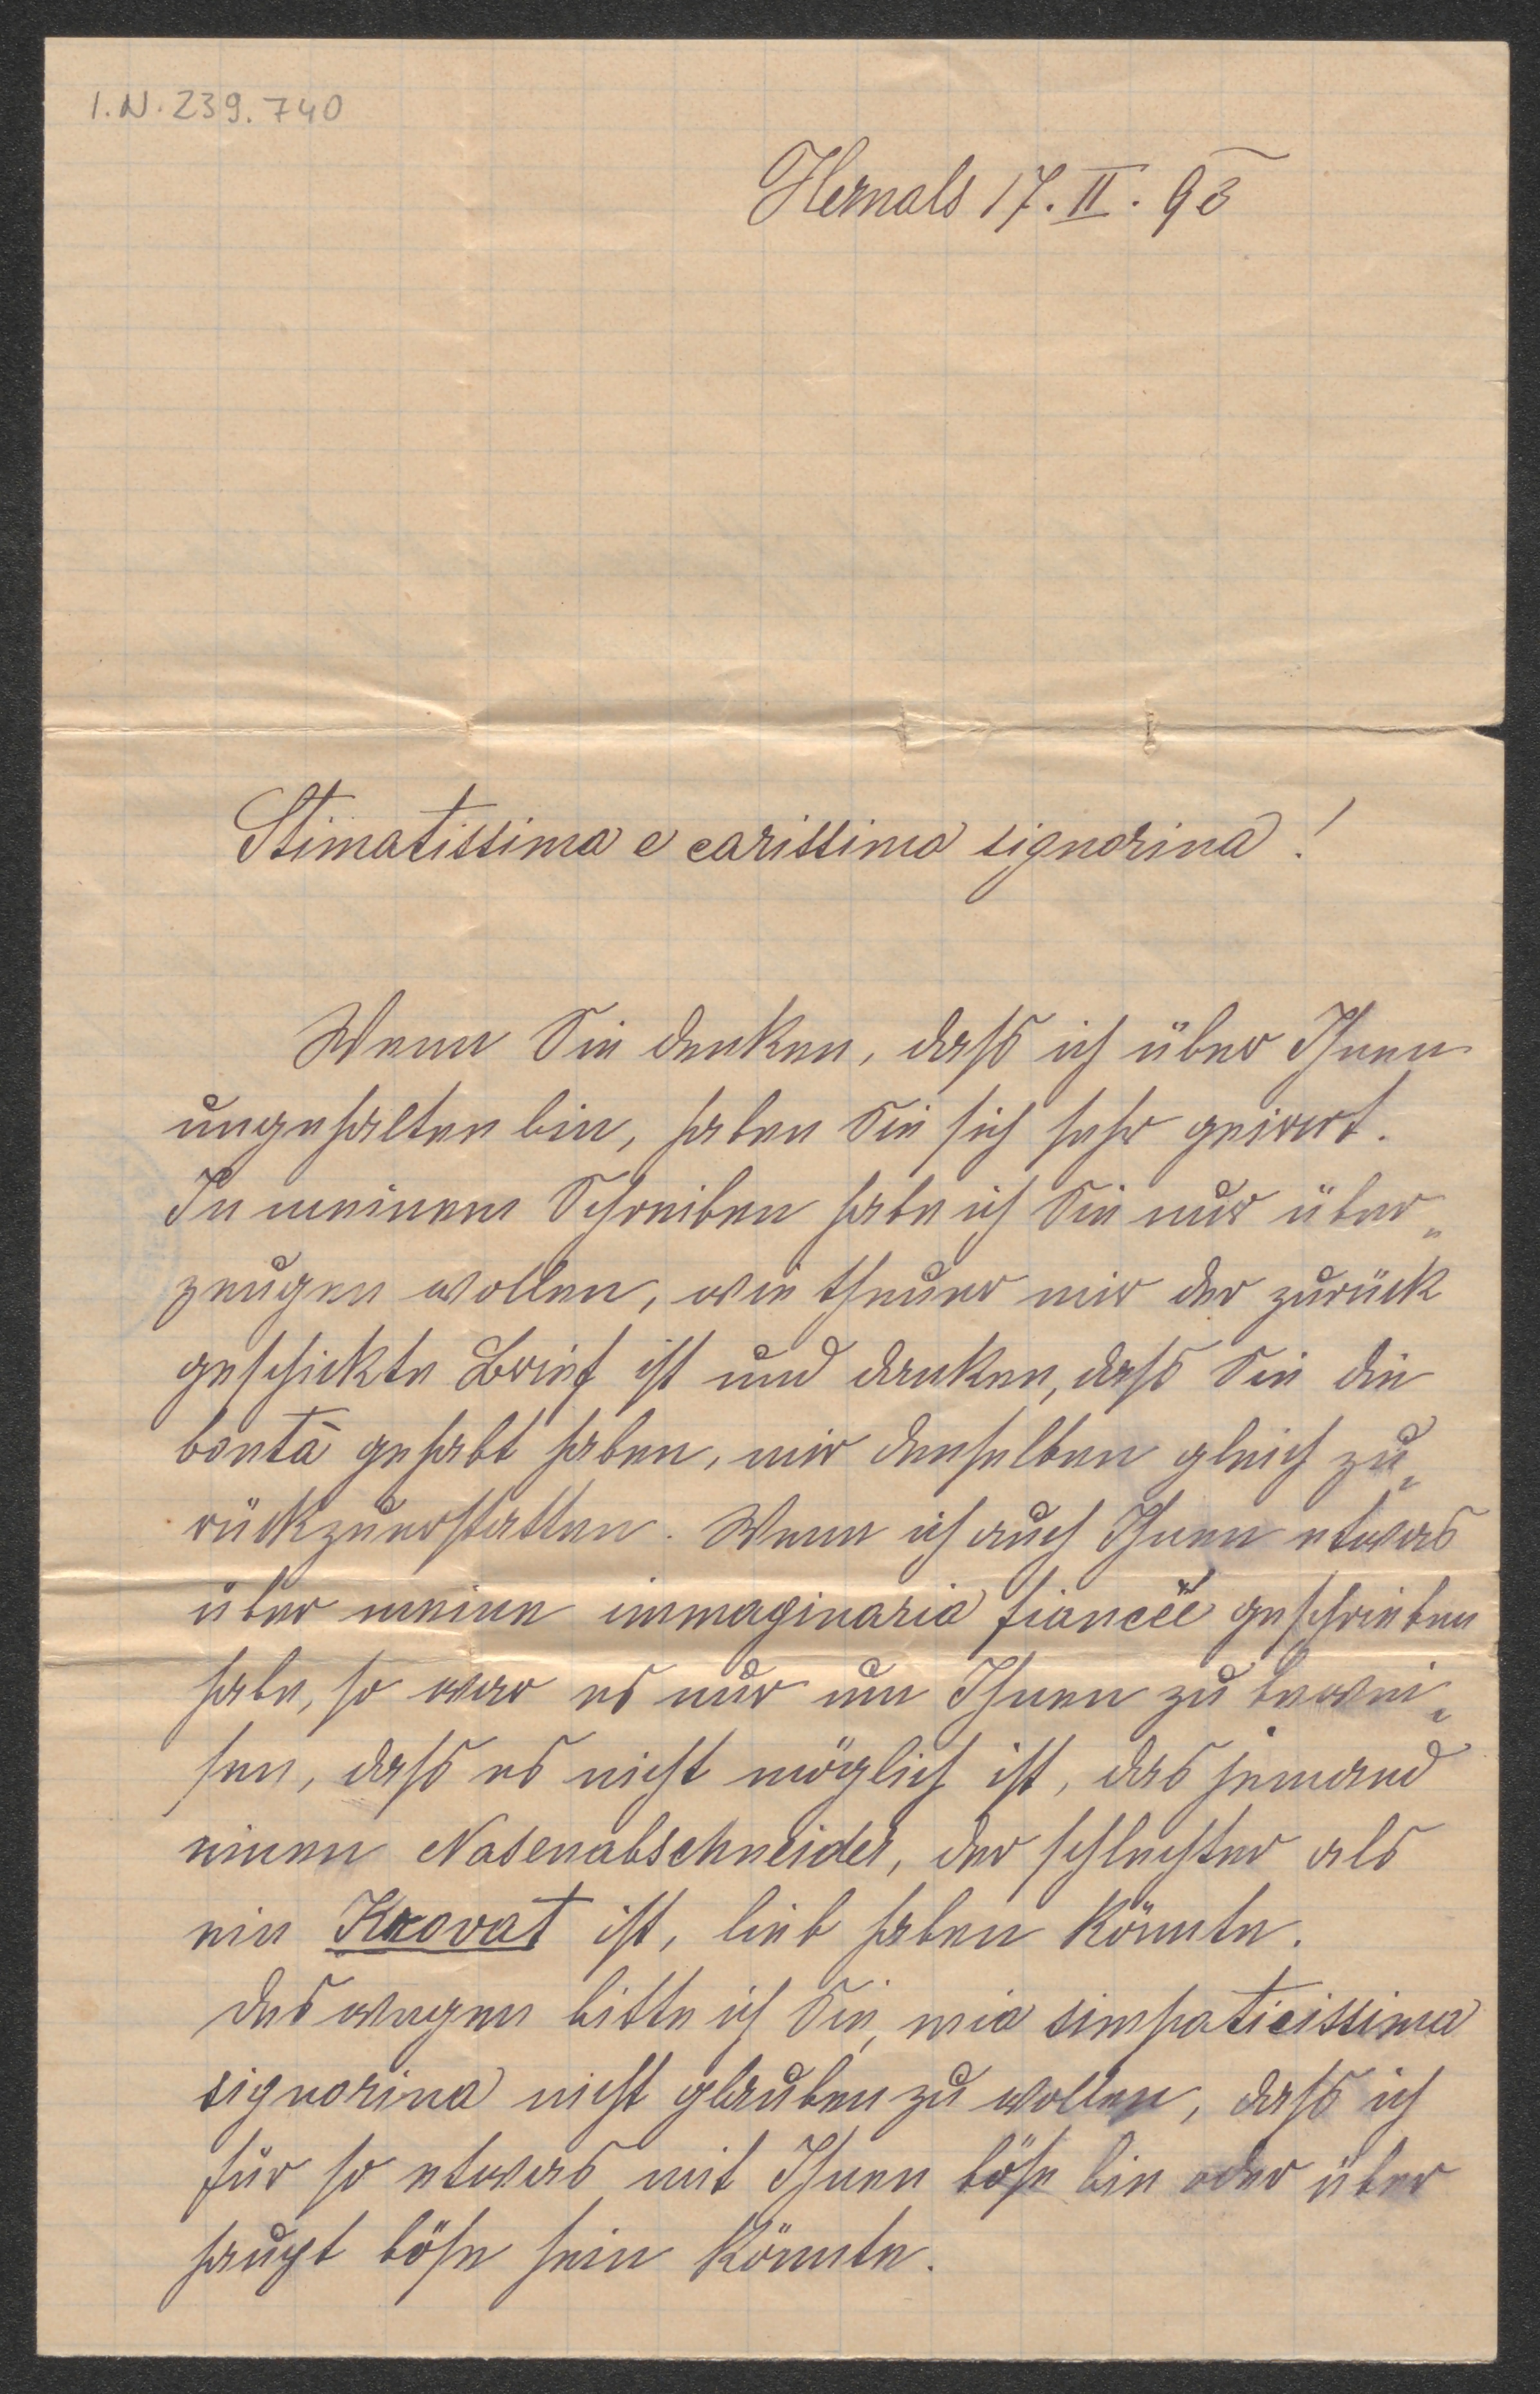 I.N. 239.740
Hernals 17. II. 93
Stimatissima e carissima signorina!
Wenn Sie denken, dass ich über Ihnen
ungehalten bin, haben Sie sich sehr geirrt.
In meinem Schreiben habe ich Sie nur über„
zeugen wollen, wie theuer mir der zurück
geschickte Brief ist und danken, dass Sie die
bontà gehabt haben, mir denselben gleich zu„
rückzuerstatten. Wenn ich auch Ihnen etwas
über meine immaginaria fiancée geschrieben
habe, so war es nur um Ihnen zu bewei„
sen, dass es nicht möglich ist, das jemand
einen Nasenabschneider, der schlechter als
ein Krovat ist, lieb haben könnte.
Deswegen bitte ich Sie, mia simpaticissima
signorina nicht glauben zu wollen, dass ich
für so etwas mit Ihnen böse bin oder über
haupt böse sein könnte.